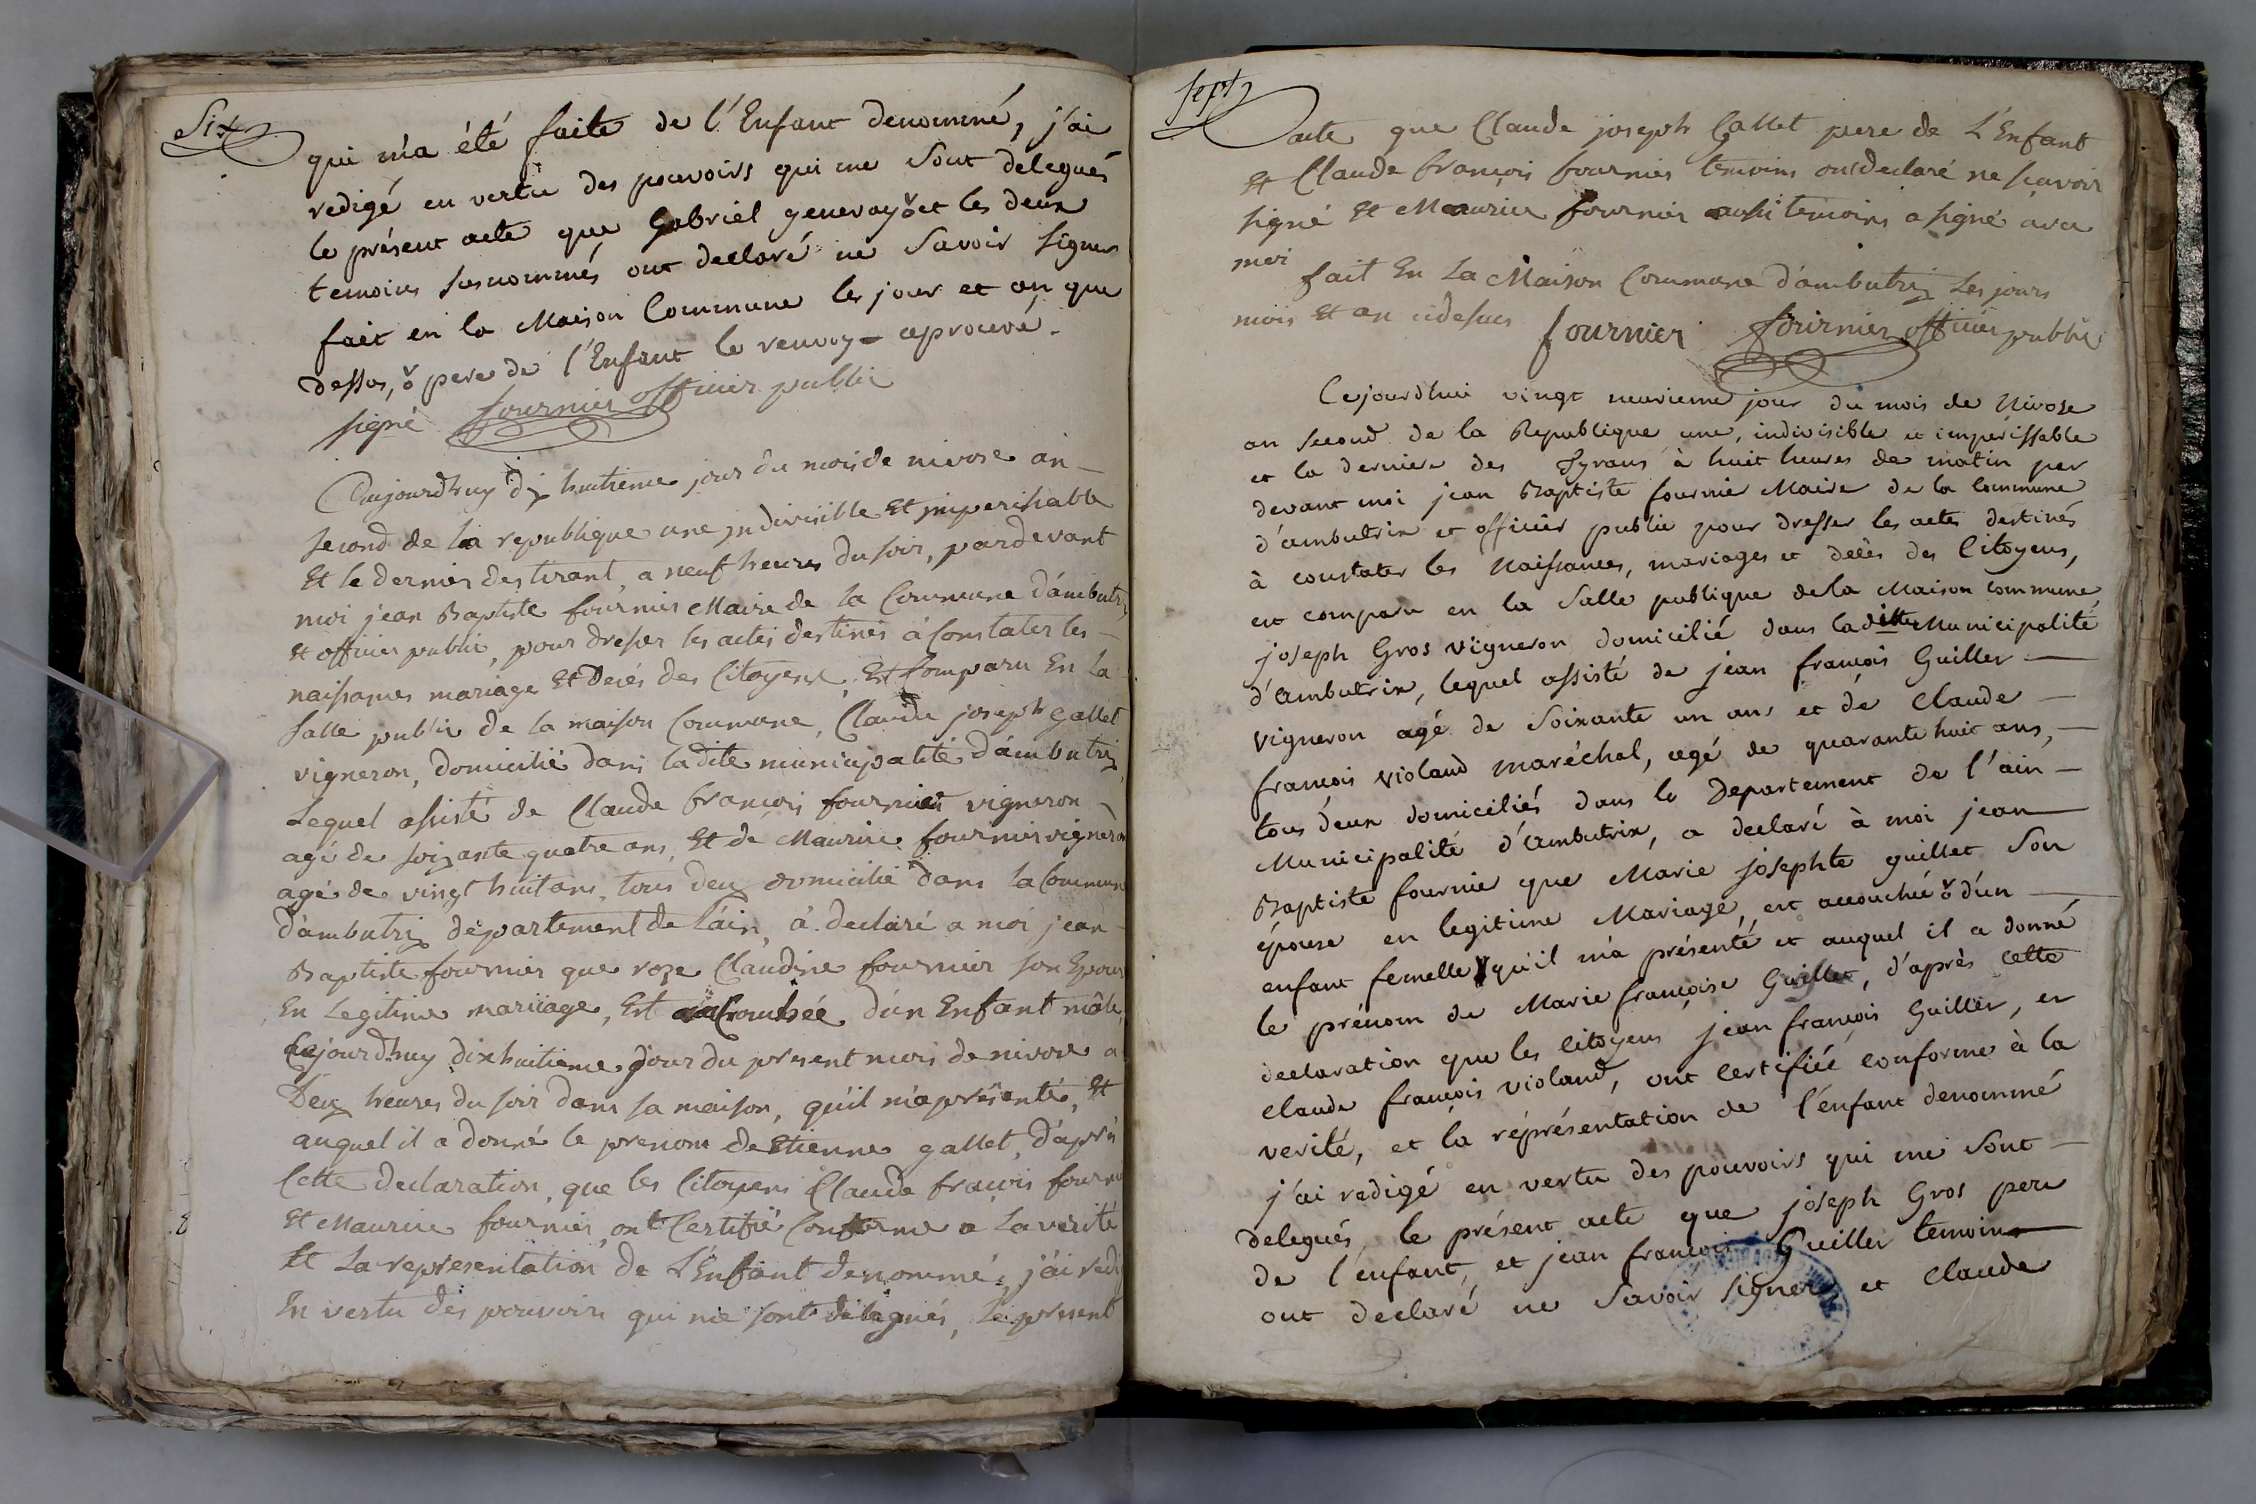 Six
qui m'a été faite de l'Enfant denommé, j'ai
redigé en vertu des pouvoirs qui me sont delegués
le présent acte que Gabriel genevoy et les deux
temoins susnommés ont declaré ne Savoir signer
fait en la Maison Commune les jour et an que
dessus, pere de l'Enfant le renvoy aprouvé.
signé fournier officier public
Aujourdhuy dix huitieme jour du mois de nivose an
second de la republique une jndivisible Et jmperissable
Et le dernier des tirant, a neuf heures du soir, pardevant
moi jean Baptiste fournier Maire de la Commune d'ambutrix
Et officier public, pour dresser les actes destinés à Constater les
naissances mariage Et Decés des Citoyens, Est Comparu En la
salle public de la maison Commune, Claude joseph gallet
vigneron, domicilié dans ladite municipalité d'ambutrix
Lequel assisté de Claude francois fournier vigneron
agé de soixante quatre ans, Et de Maurice fournier vigneron
agé de vingt huit ans, tous deux domicilié dans la Commune
d'ambutrix département de l'ain, à declaré a moi jean
Baptiste fournier que roze Claudine fournier son Epouse
En Legitime mariiage, Est acCouchée d'un Enfant mâle,
Cejourdhuy dixhuitieme jour du present mois de nivose a
Deux heures du soir dans sa maison, qu'il m'a présenté, Et
auquel il a donné le prenom de Etienne gallet, d'après
Cette declaration, que les Citoyens Claude francois fournier
Et Maurice fournier, ont Certifié Conforme a la verité
Et La representation de L'Enfant denommé, j'ai redi
En vertu des pouvoirs qui me sont delegués, le present
sept
acte que Claude joseph Gallet pere de L'Enfant
Et Claude francois fournier temoins ont declaré ne scavoir
signé Et Maurice fournier aussi temoins a signé avec
moi
fait En La Maison Commune d'ambutrix Les jours
mois Et an cidessus fournier fournier officier public
Cejourdhui vingt neuvieme jour du mois de Nivose
an second de la Republique une, indivisible et imperissable
et la derniere des Tyrans à huit heures de matin par
devant moi jean Baptiste fournier Maire de la Commune
d'ambutrix et officier public pour dresser les actes destinés
à constater les Naissances, mariages et decès des Citoyens,
est comparu en la Salle publique de la Maison commune,
joseph Gros vigneron domicilié dans laditte Municipalité
d'ambutrix, lequel assisté de jean françois Guiller
vigneron agé de soixante un ans et de Claude
françois violand maréchal, agé de quarante huit ans,
tous deux domiciliés dans le Departement de l'ain
Municipalité d'ambutrix, a declaré à moi jean
Baptiste fournier que Marie josephte guillet Son
épouse en legitime Mariage, est accouchée d'un
enfant femelle qu'il m'a présenté et auquel il a donné
le prénom de Marie françoise Guillet, d'après cette
declaration que les citoyens jean françois Guiller, et
claude françois violand, ont certifiée conforme à la
verité, et la réprésentation de l'énfant denommé
j'ai redigé en vertu des pouvoirs qui me sont
delegués, le présent acte que joseph Gros pere
de l'enfant, et jean françois Guiller temoins
ont declaré ne Savoir signer, et claude